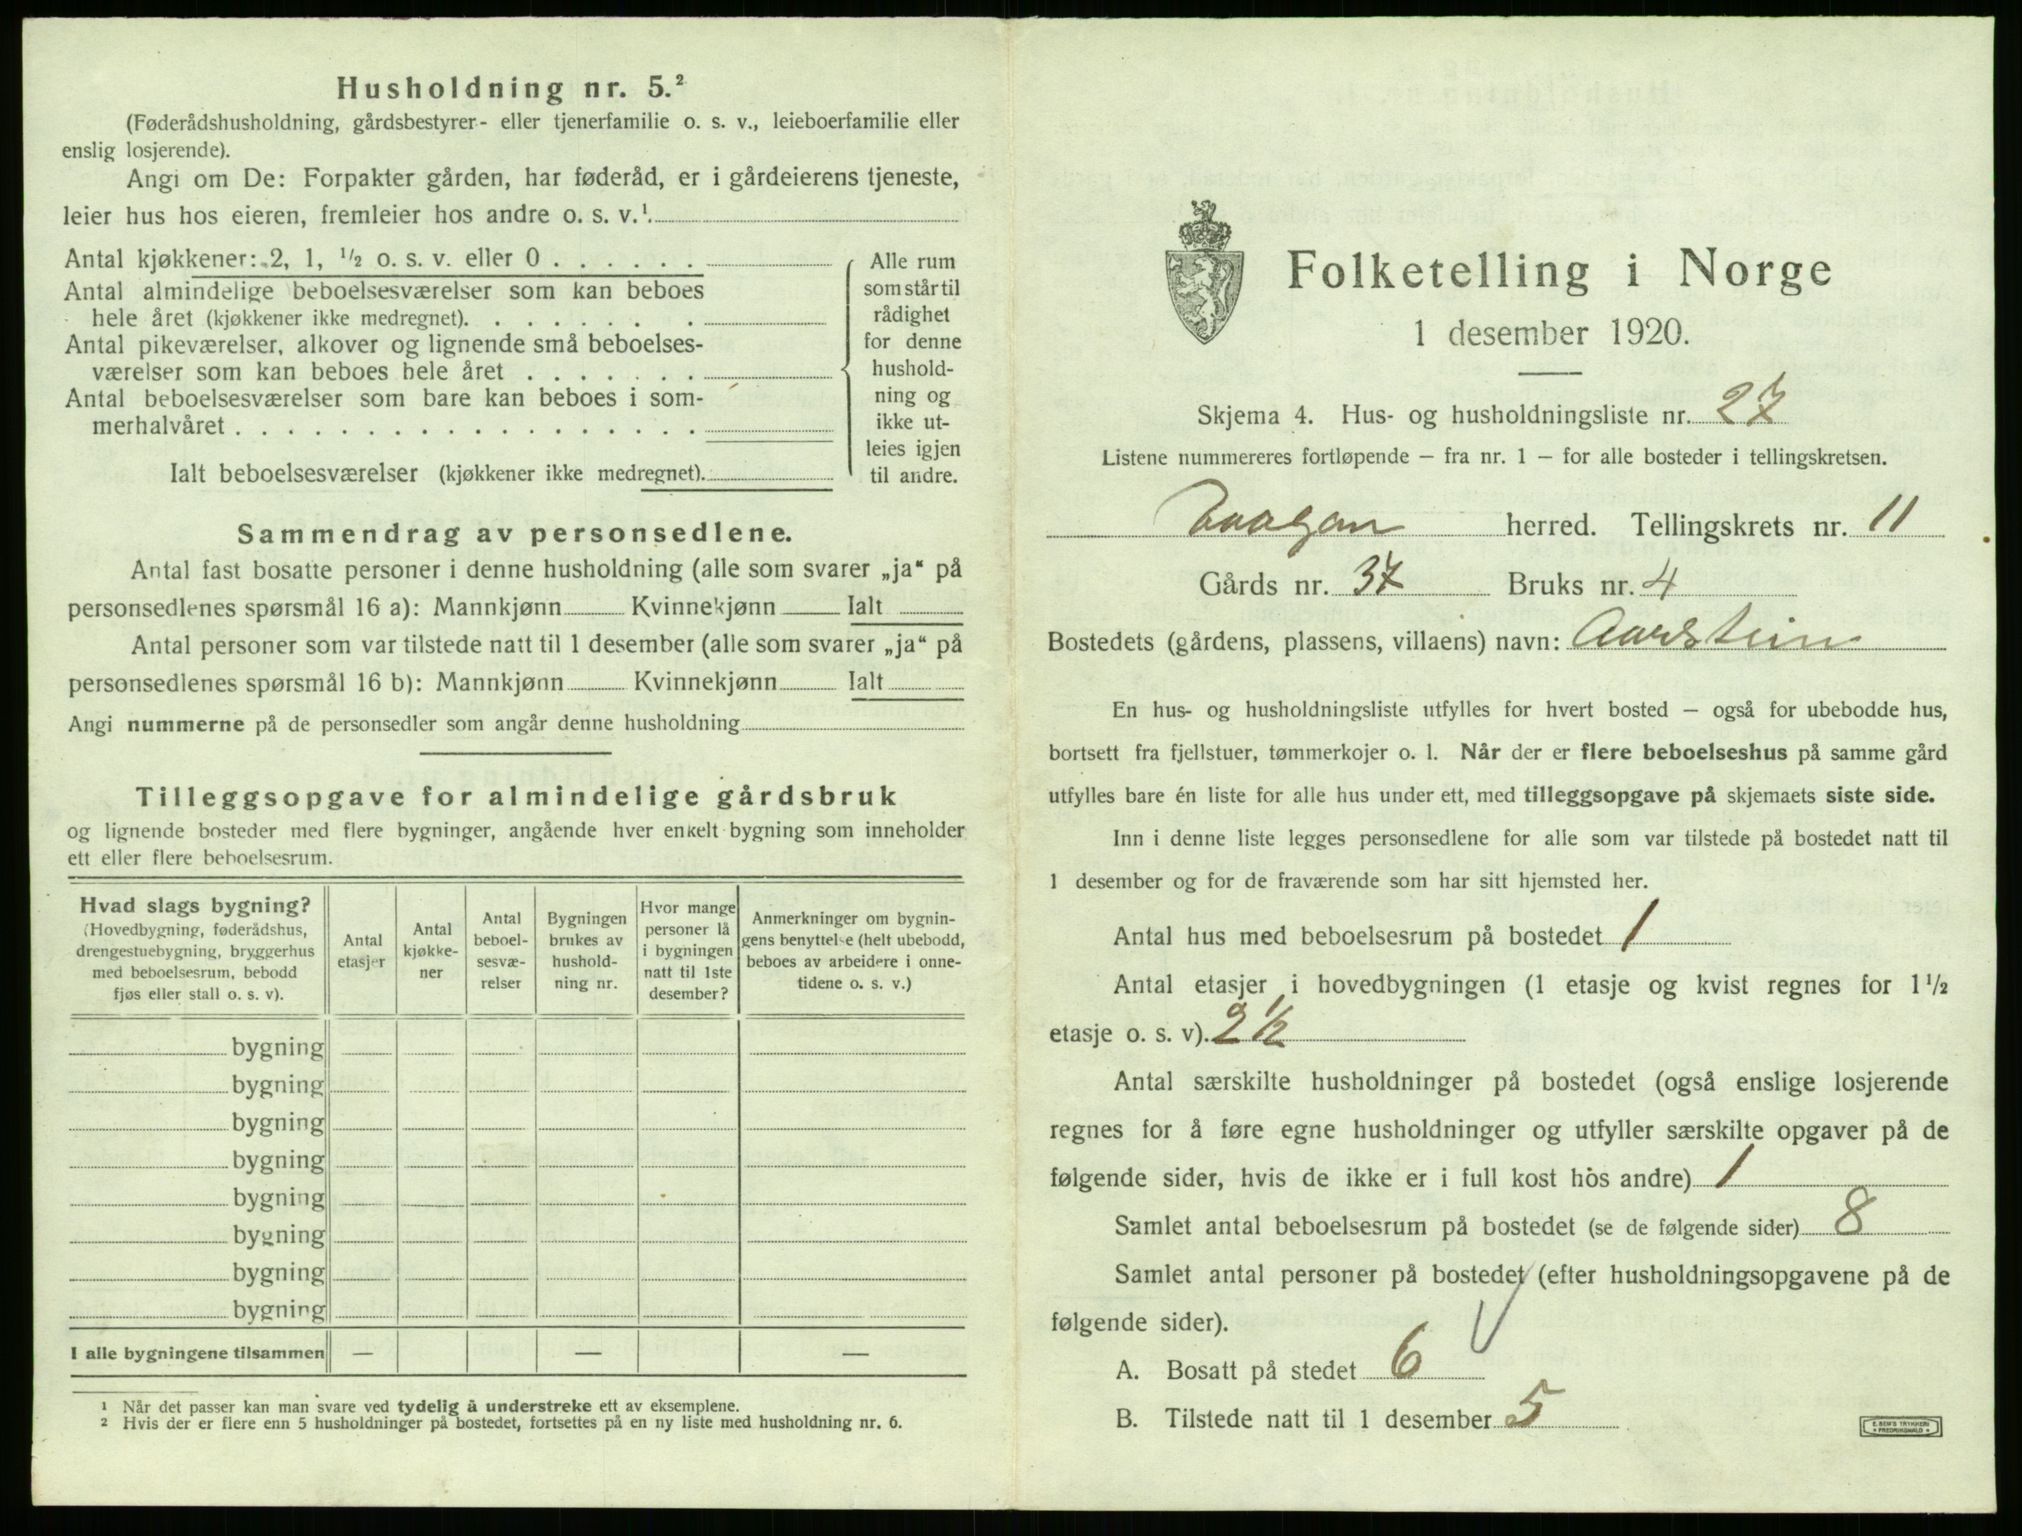 Husholdning nr. 5.²
(Føderådshusholdning, gårdsbestyrer- eller tjenerfamilie o. s. v., leieboerfamilie eller
enslig losjerende).
Angi om De: Forpakter gården, har føderåd, er i gårdeierens tjeneste,
leier hus hos eieren, fremleier hos andre o. s. v.¹
Antal kjøkkener: 2, 1, ½ o. s. v. eller 0 . . . . . .
Antal almindelige beboelsesværelser som kan beboes
hele året (kjøkkener ikke medregnet). . . . . . . .
Antal pikeværelser, alkover og lignende små beboelses-
værelser som kan beboes hele året . . . . . . .
Antal beboelsesværelser som bare kan beboes i som-
merhalvåret . . . . . . . . . . . . . . . . . .
Ialt beboelsesværelser (kjøkkener ikke medregnet).
Alle rum
som står til
rådighet
for denne
hushold-
ning og
ikke ut-
leies igjen
til andre.
Sammendrag av personsedlene.
Antal fast bosatte personer i denne husholdning (alle som svarer „ja“ på
personsedlenes spørsmål 16 a): Mannkjønn Kvinnekjønn Ialt
Antal personer som var tilstede natt til 1 desember (alle som svarer „ja“ på
personsedlenes spørsmål 16 b): Mannkjønn Kvinnekjønn Ialt
Angi nummerne på de personsedler som angår denne husholdning
Tilleggsopgave for almindelige gårdsbruk
og lignende bosteder med flere bygninger, angående hver enkelt bygning som inneholder
ett eller flere beboelsesrum.
Hvad slags bygning?
(Hovedbygning, føderådshus,
drengestuebygning, bryggerhus
med beboelsesrum, bebodd
fjøs eller stall o. s. v).
Antal
etasjer
Antal
kjøkke-
ner
Antal
beboel-
sesvæ-
relser
Bygningen
brukes av
hushold-
ning nr.
Hvor mange
personer lå
i bygningen
natt til 1ste
desember?
Anmerkninger om bygnin-
gens benyttelse (helt ubebodd,
beboes av arbeidere i onne-
tidene o. s. v.)
bygning
bygning
bygning
bygning
bygning
bygning
bygning
bygning
I alle bygningene tilsammen — — —
¹ Når det passer kan man svare ved tydelig å understreke ett av eksemplene.
² Hvis der er flere enn 5 husholdninger på bostedet, fortsettes på en ny liste med husholdning nr. 6.
Folketelling i Norge
1 desember 1920.
Skjema 4. Hus- og husholdningsliste nr. 27
Listene nummereres fortløpende – fra nr. 1 – for alle bosteder i tellingskretsen.
Vaagan herred. Tellingskrets nr. 11
Gårds nr. 37 Bruks nr. 4
Bostedets (gårdens, plassens, villaens) navn: Aarstein
En hus- og husholdningsliste utfylles for hvert bosted – også for ubebodde hus,
bortsett fra fjellstuer, tømmerkojer o. l. Når der er flere beboelseshus på samme gård
utfylles bare én liste for alle hus under ett, med tilleggsopgave på skjemaets siste side.
Inn i denne liste legges personsedlene for alle som var tilstede på bostedet natt til
1 desember og for de fraværende som har sitt hjemsted her.
Antal hus med beboelsesrum på bostedet 1
Antal etasjer i hovedbygningen (1 etasje og kvist regnes for 1½
etasje o. s. v). 2½
Antal særskilte husholdninger på bostedet (også enslige losjerende
regnes for å føre egne husholdninger og utfyller særskilte opgaver på de
følgende sider, hvis de ikke er i full kost hos andre) 1
Samlet antal beboelsesrum på bostedet (se de følgende sider) 8
Samlet antal personer på bostedet (efter husholdningsopgavene på de
følgende sider).
A. Bosatt på stedet 6
B. Tilstede natt til 1 desember 5
E. SEM'S TRYKKERI
FREDRIKSHALD